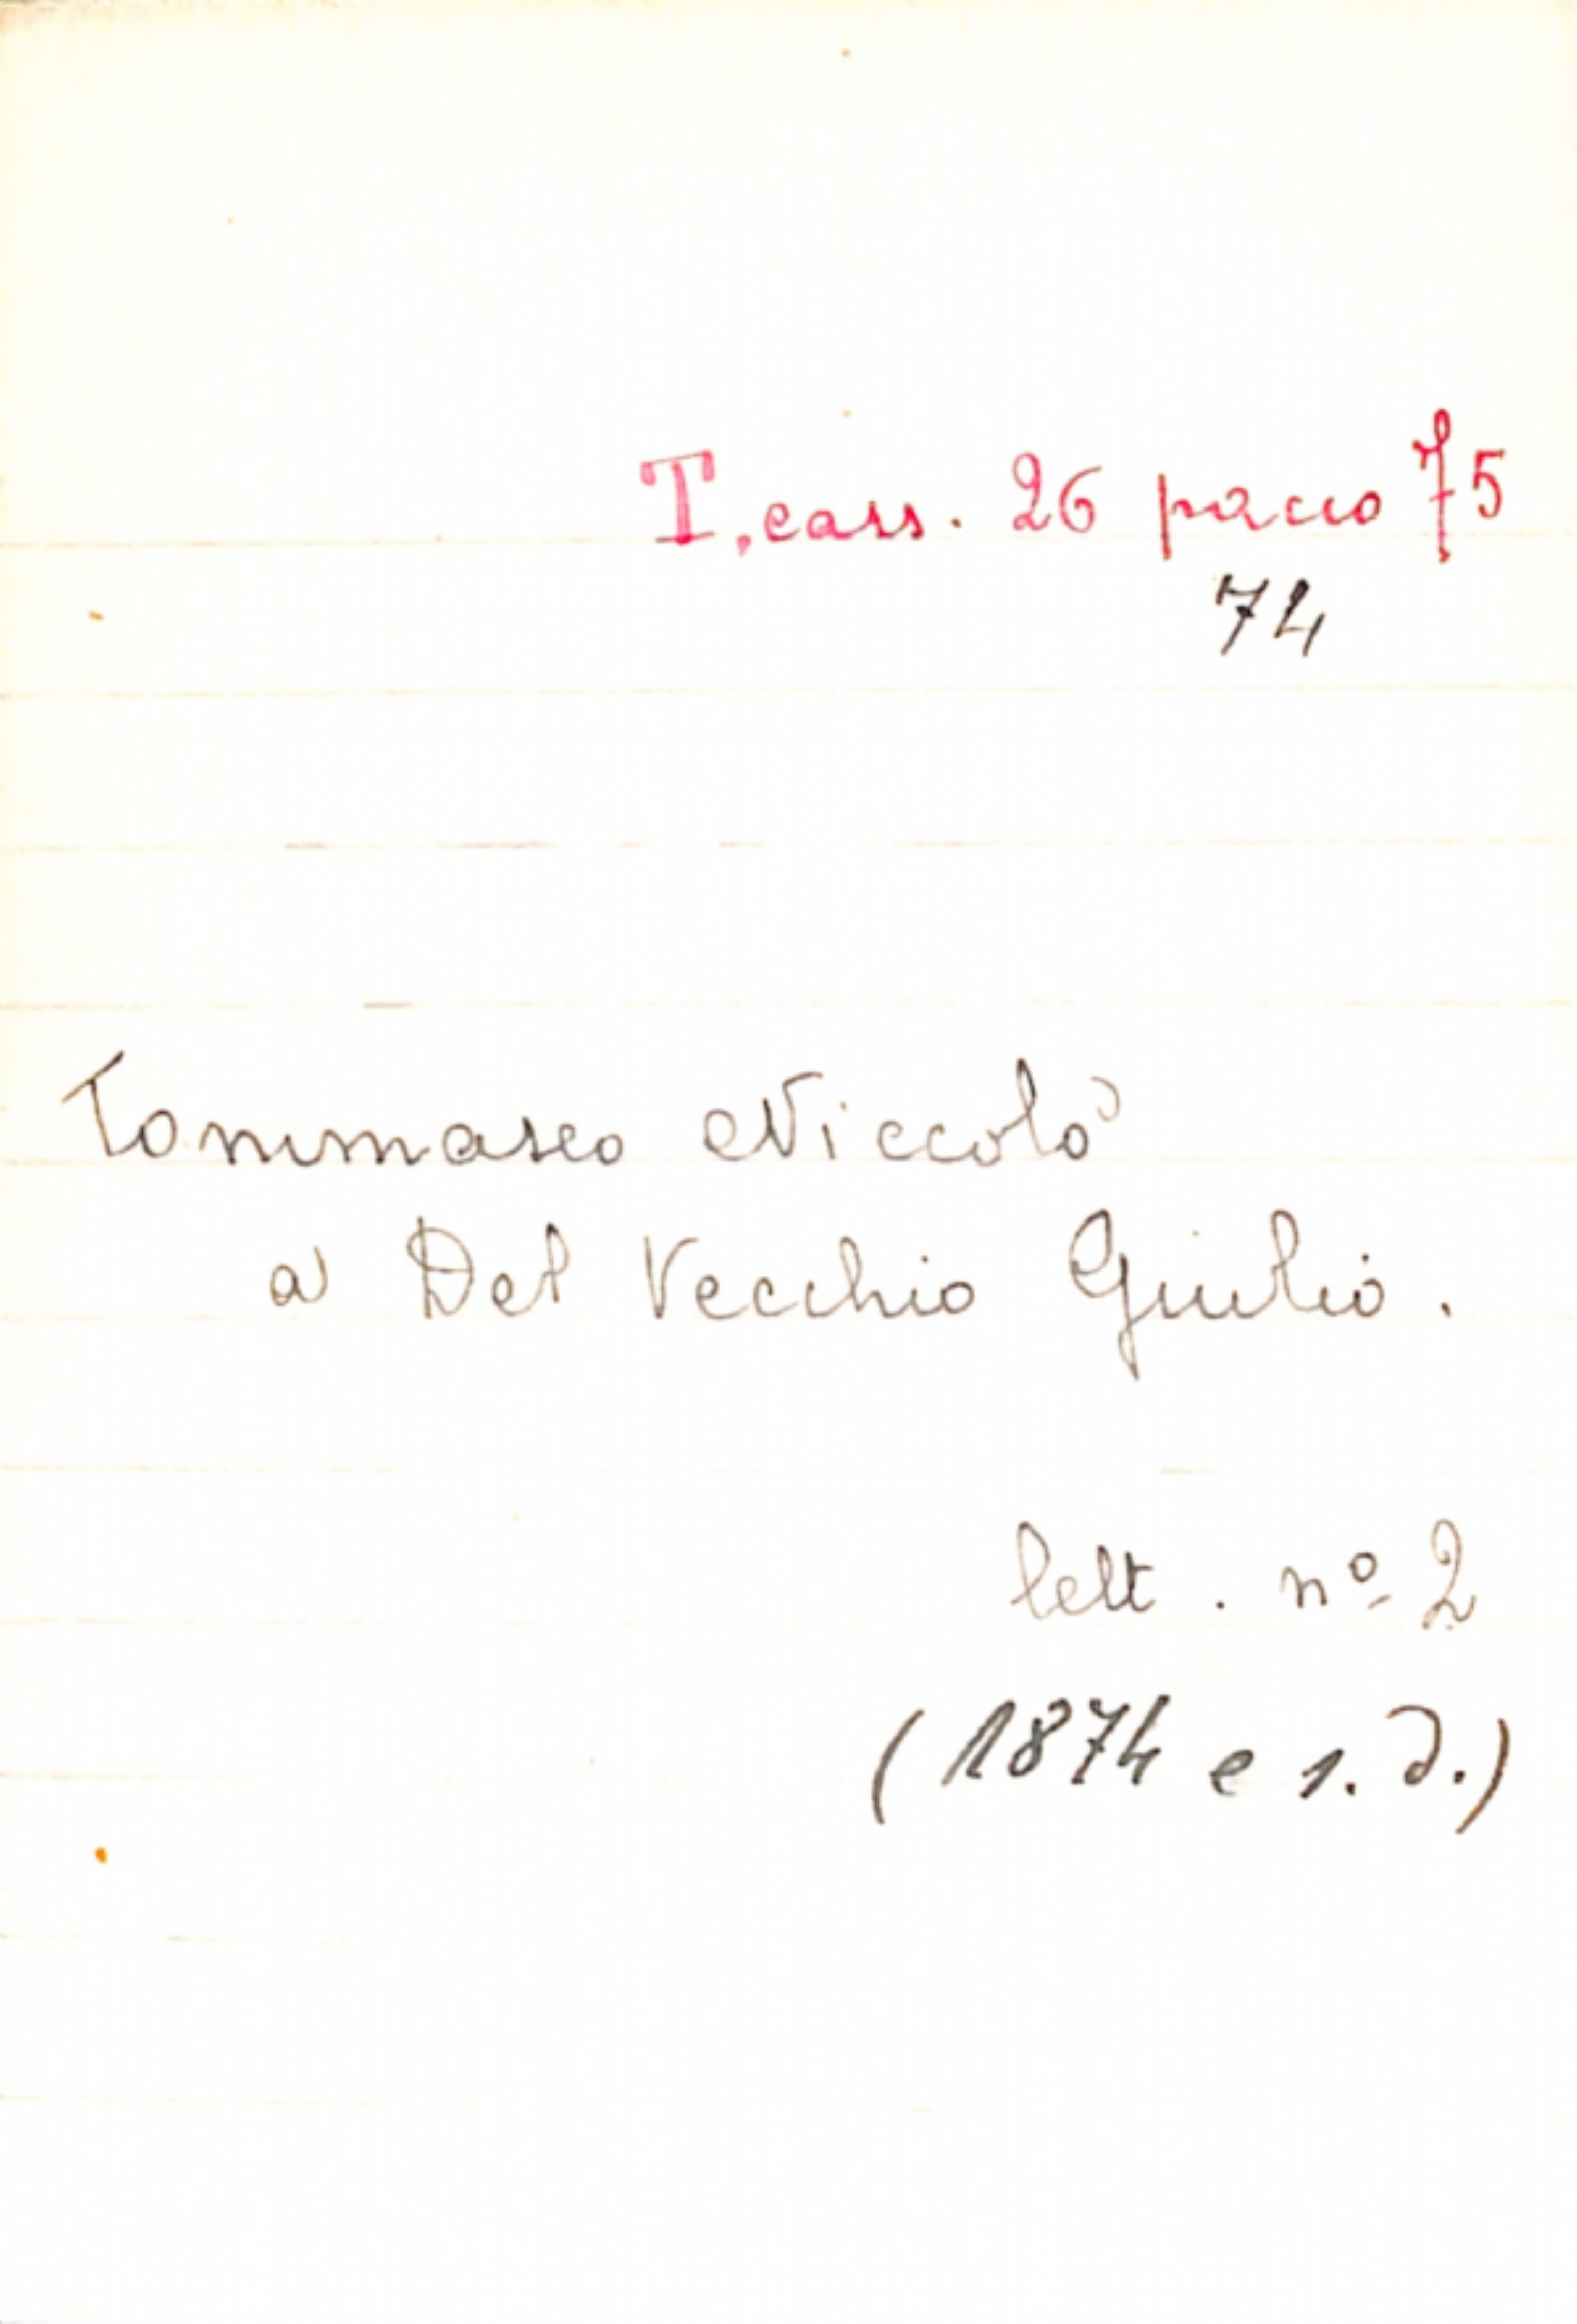 T. cass. 26 pacco 75
74
Tommaseo Niccolò
a Del Vecchio Giulio.
lett. nº 2
(1874 e s. d.)